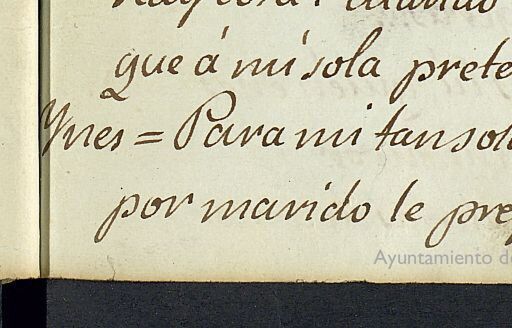 que á mi sola prete
Ynes = Para mi tan sola
por marido le pre
Ayuntamiento de